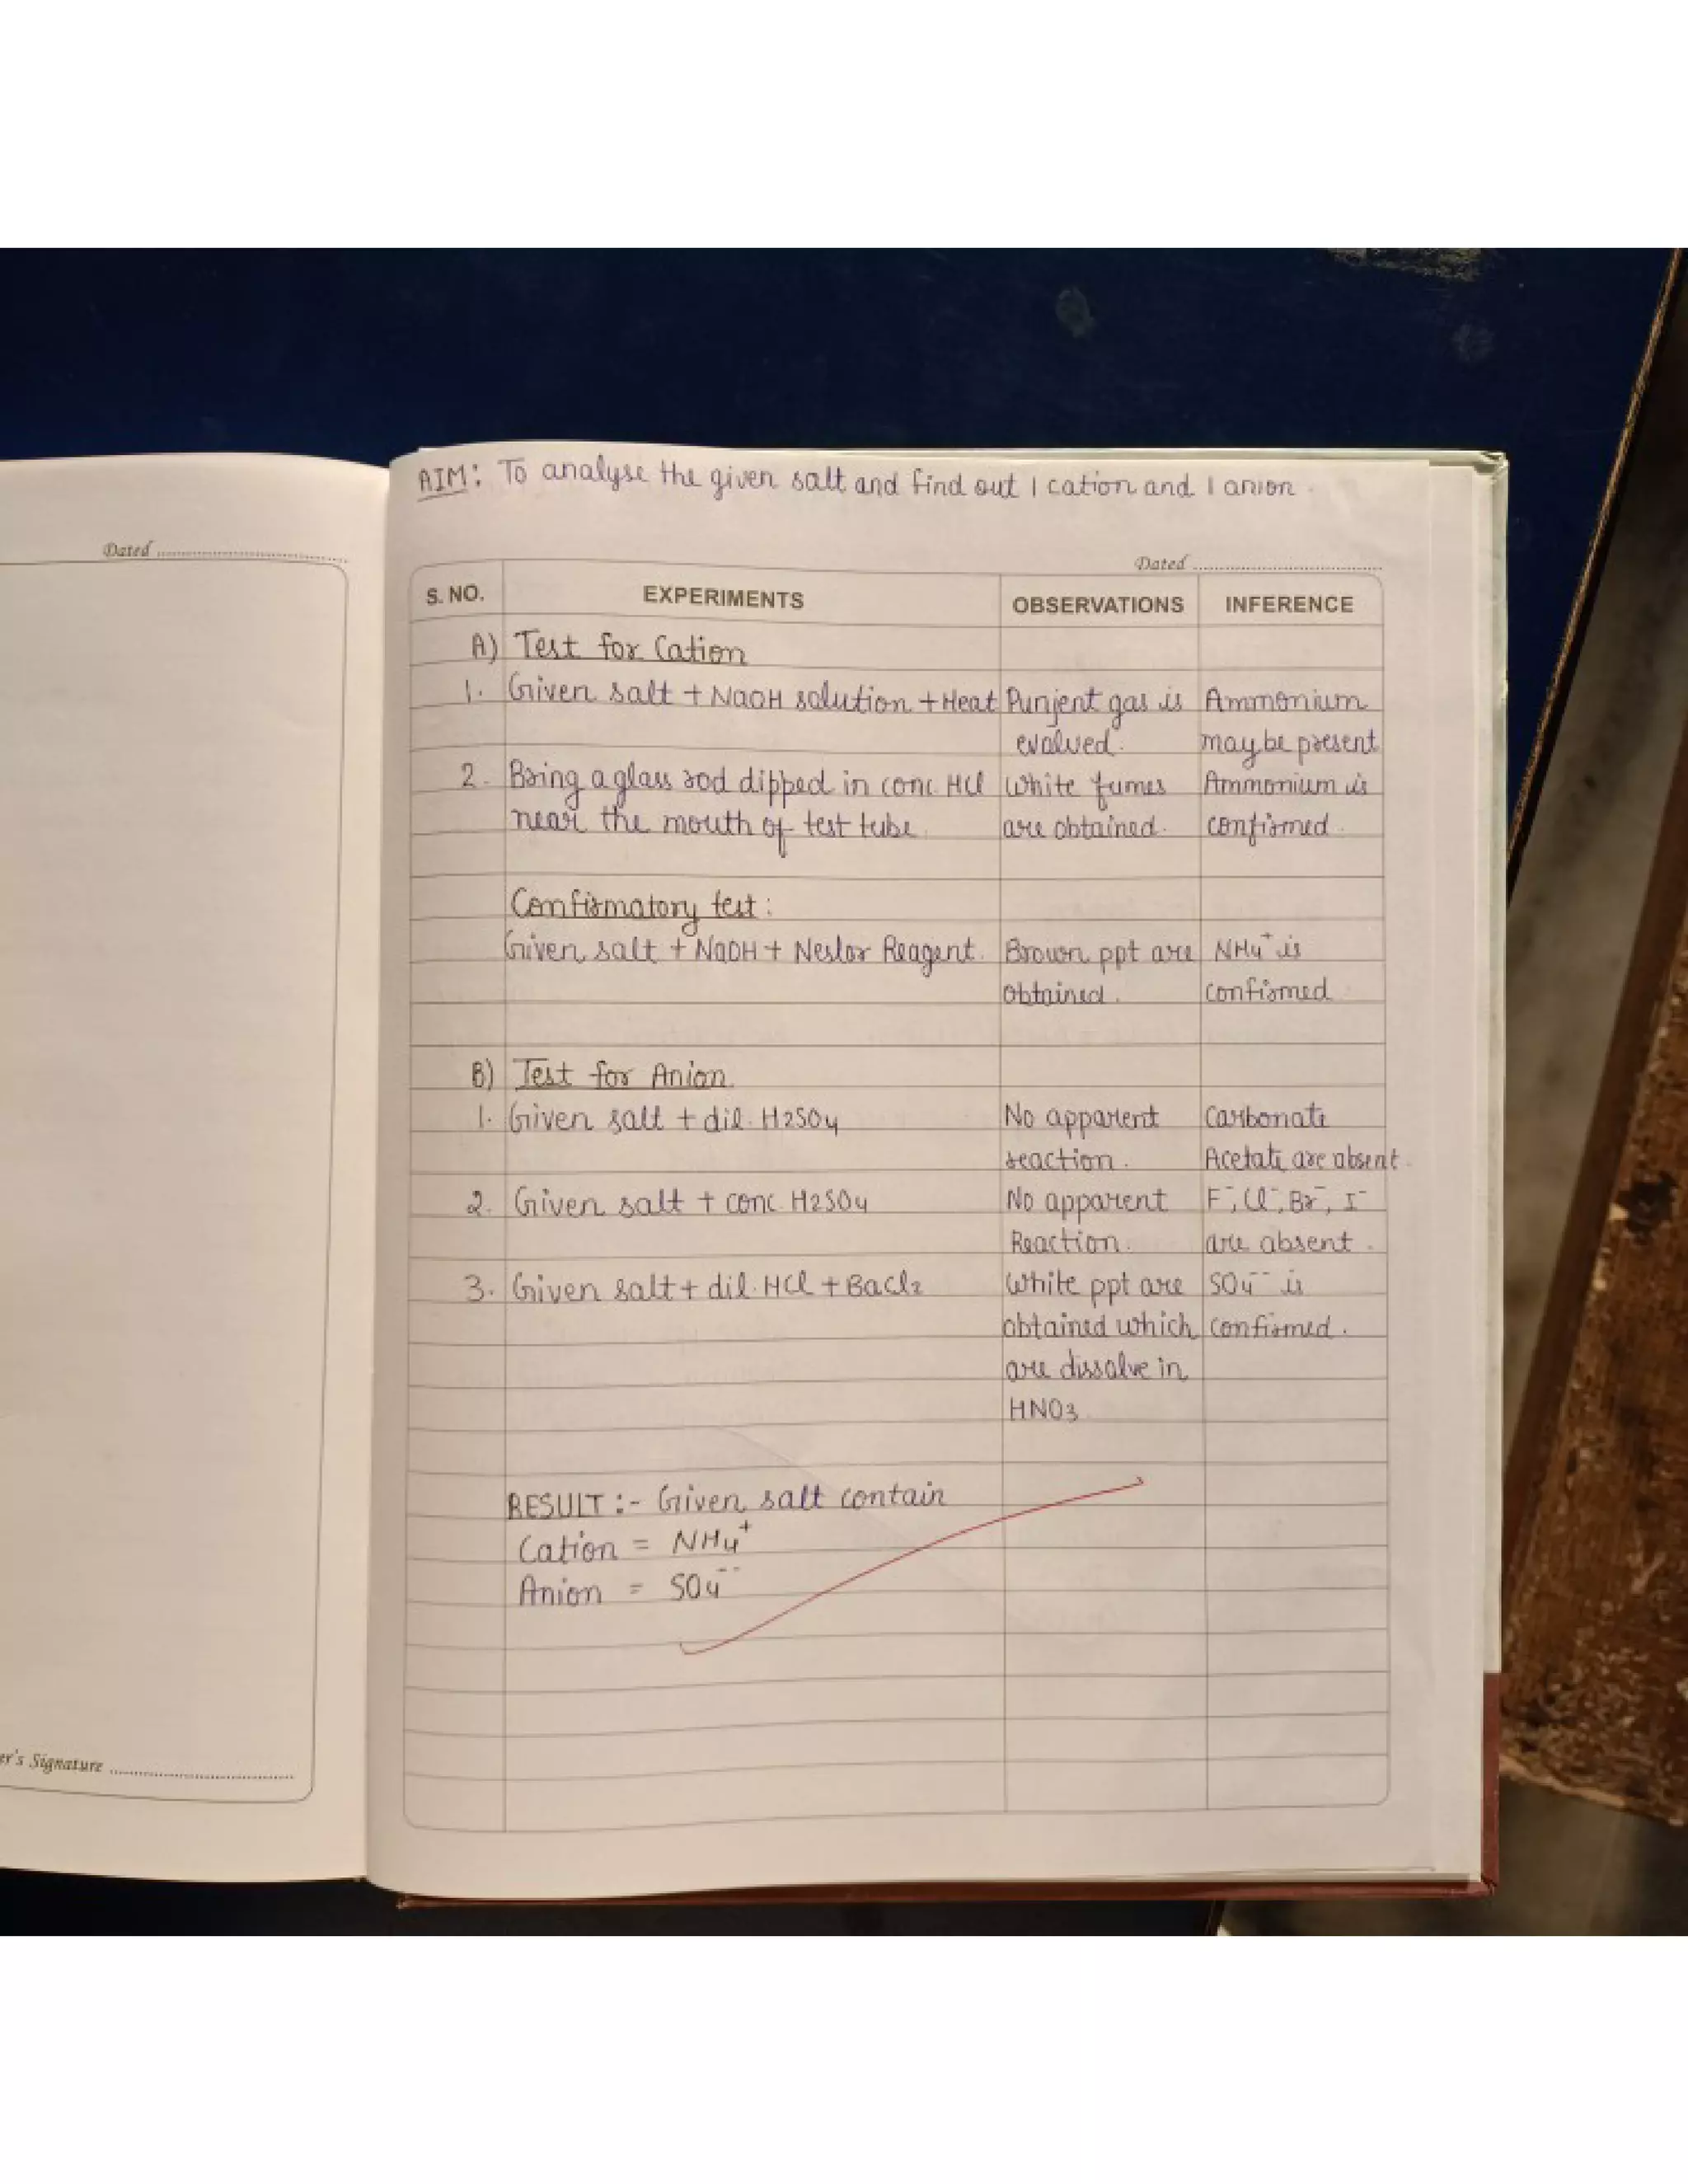 AIM: To analyse the given salt and find out 1 cation and 1 anion.
Dated
Dated
S. NO. EXPERIMENTS OBSERVATIONS INFERENCE
A) Test for Cation
1. Given salt + NaOH solution + Heat Punjent gas is Ammonium
evolved. may be present
2. Bring a glass rod dipped in conc. HCl White fumes Ammonium is
near the mouth of test tube. are obtained. confirmed.
Confirmatory test:
Given salt + NaOH + Neslor Reagent. Brown ppt are NH4+ is
obtained. confirmed
B) Test for Anion
1. Given salt + dil. H2SO4 No apparent Carbonate
reaction. Acetate are absent.
2. Given salt + conc. H2SO4 No apparent F-, Cl-, Br-, I-
Reaction. are absent.
3. Given salt + dil. HCl + BaCl2 White ppt are SO4-- is
obtained which confirmed.
are dissolve in
HNO3
RESULT :- Given salt contain
Cation = NH4+
Anion = SO4--
er's Signature